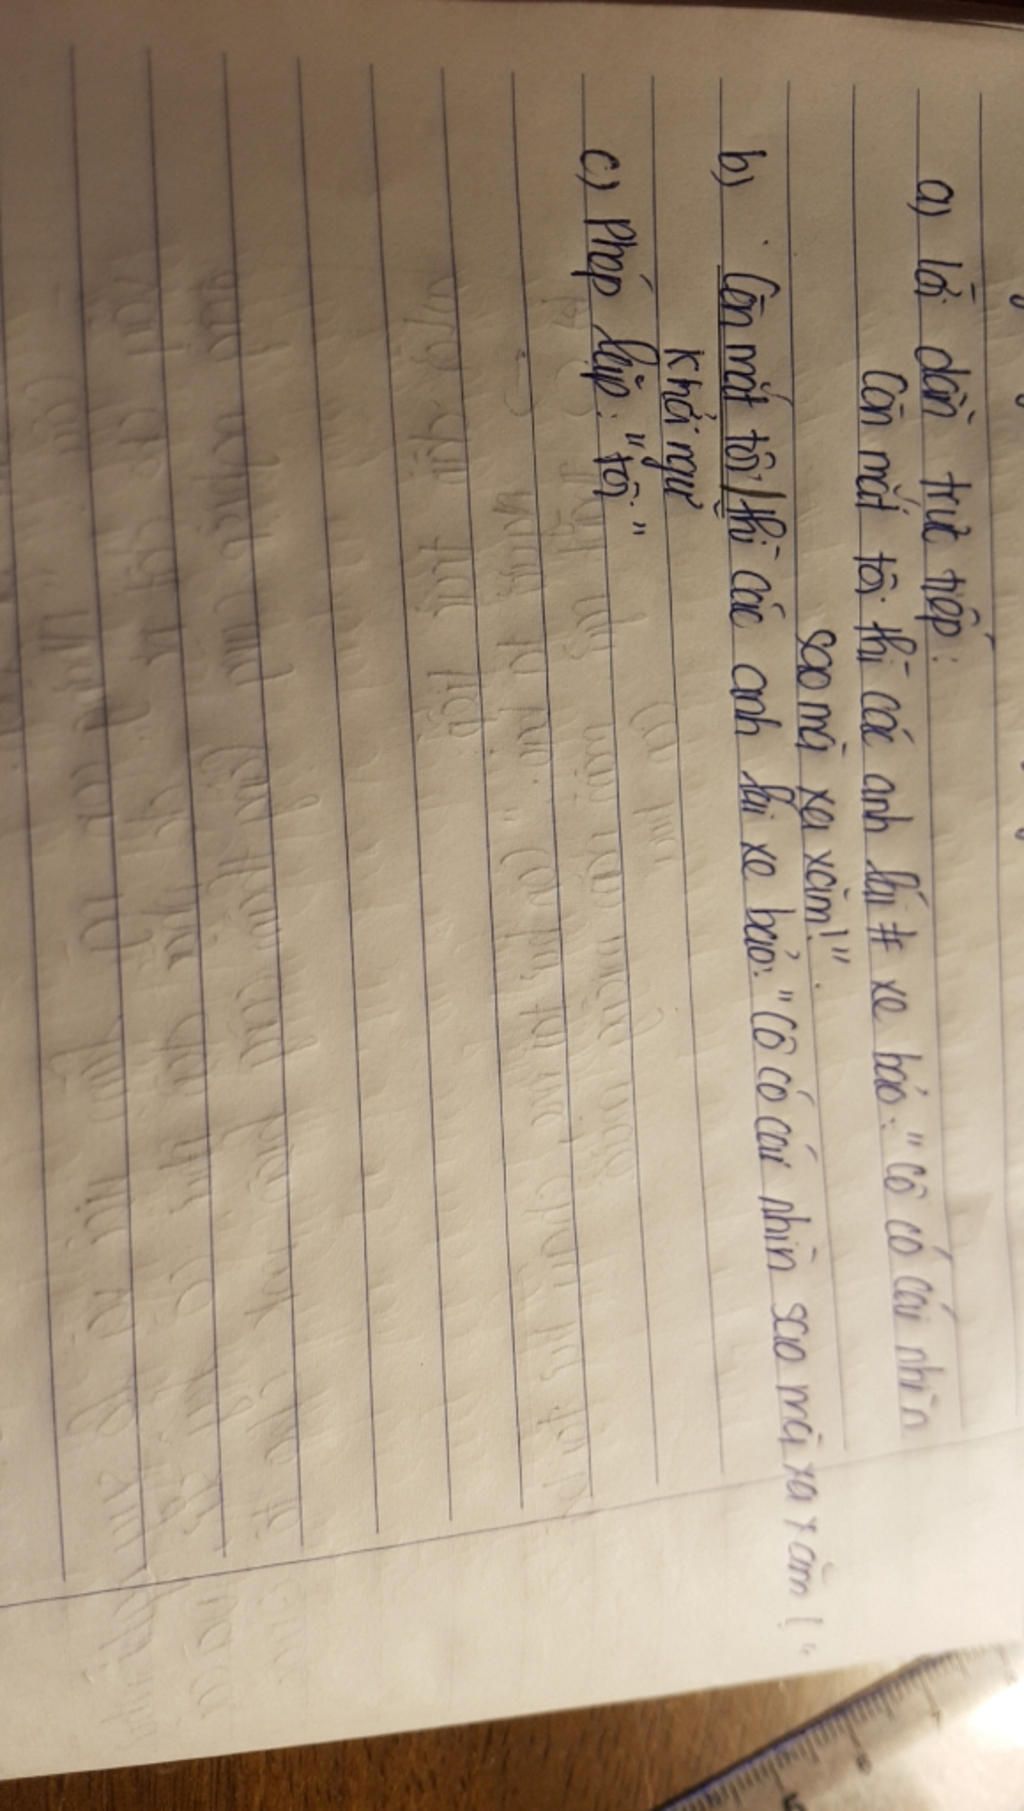 a) lời dẫn trực tiếp:
Còn mắt tôi thì các anh lái xe bảo: "cô có cái nhìn
sao mà xa xăm!".
b) Còn mắt tôi / thì các anh lái xe bảo: "Cô có cái nhìn sao mà xa xăm!"
khởi ngữ
c) Phép lặp: "tôi"